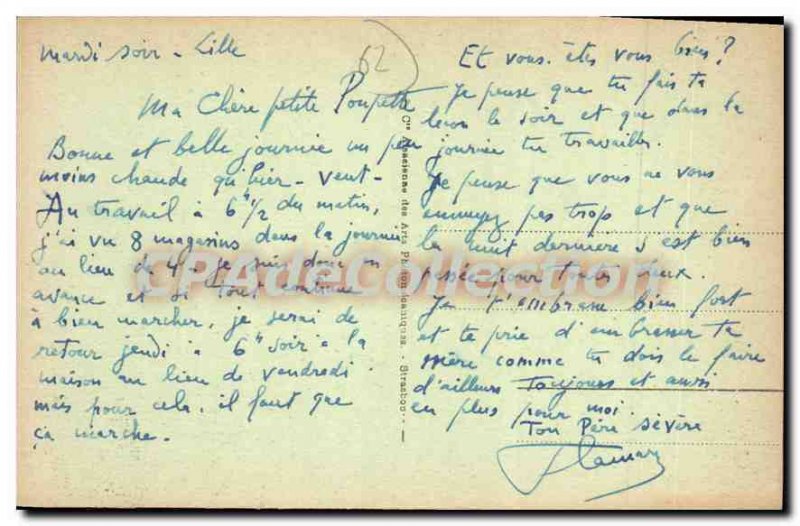 Mardi soir - Lille
62
Ma Chère petite Poupette
Bonne et belle journée un peu
moins chaude qu'hier - Vent -
Au travail à 6h 1/2 du matin,
j'ai vu 8 magasins dans la journée
au lieu de 4 - je suis donc en
avance et si tout continue
à bien marcher, je serai de
retour jeudi à 6h soir à la
maison au lieu de vendredi.
mais pour cela, il faut que
ça marche.
Et vous. êtes vous bien ?
Je pense que tu fais ta
leçon le soir et que dans la
journée tu travailles.
Je pense que vous ne vous
ennuyez pas trop et que
la nuit dernière s'est bien
passée pour toutes deux.
Je t'embrasse bien fort
et te prie d'embrasser ta
mère comme tu dois le faire
d'ailleurs toujours et aussi
en plus pour moi.
Ton Père sévère
Cie Alsacienne des Arts Photomécaniques. - Strasbourg
CPAdeCollection